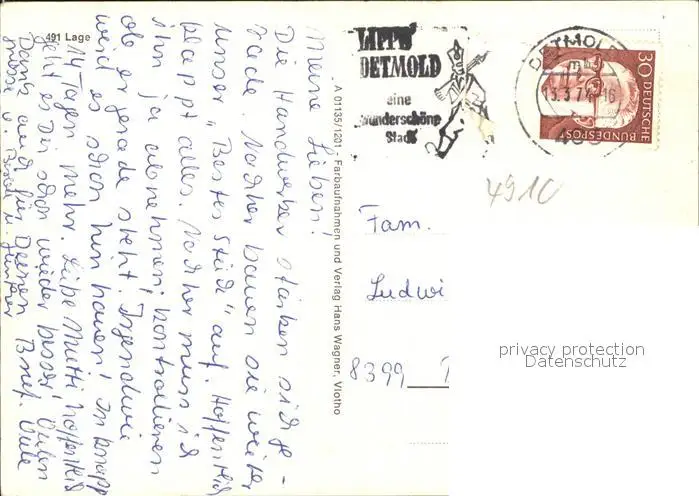 491 Lage
Meine Lieben!
Die Handwerker stärken sich ge-
rade. Nachher bauen sie weiter
unser „Bestes Stück" auf. Hoffentlich
klappt alles. Nachher muss ich
ihn ja abnehmen, kontrollieren
ob er gerade steht. Irgendwie
wird es schon hinhauen! In knapp
14 Tagen mehr. Liebe Mutti hoffentlich
geht es Dir schon wieder besser! Vielen
Dank auch für Deinen Brief. Viele
Grüsse v.
A 01135/1201 - Farbaufnahmen und Verlag Hans Wagner, Vlotho
LIPPE
DETMOLD
eine
wunderschöne
Stadt
DETMOLD
13.3.7 -16
30 DEUTSCHE
BUNDESPOST
4910
Fam.
Ludwi
8399
privacy protection
Datenschutz